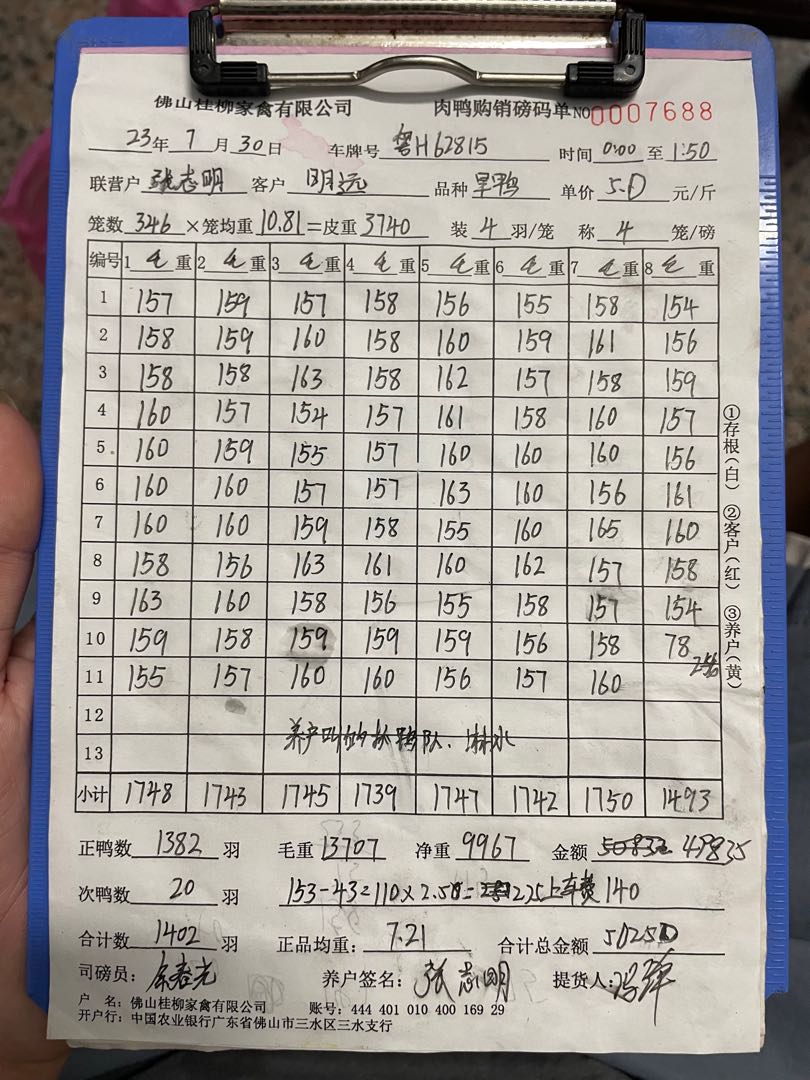 佛山桂柳家禽有限公司 肉鸭购销磅码单 NO 0007688
23年 7月 30日 车牌号 粤H62815 时间 0:00 至 1:50
联营户 张志明 客户 明远 品种 旱鸭 单价 5.0 元/斤
笼数 346 ×笼均重 10.81 =皮重 3740 装 4 羽/笼 称 4 笼/磅
编号 1 毛重 2 毛重 3 毛重 4 毛重 5 毛重 6 毛重 7 毛重 8 毛重
1 157 159 157 158 156 155 158 154
2 158 159 160 158 160 159 161 156
3 158 158 163 158 162 157 158 159
4 160 157 154 157 161 158 160 157
5 160 159 155 157 160 160 160 156
6 160 160 157 157 163 160 156 161
7 160 160 159 158 155 160 165 160
8 158 156 163 161 160 162 157 158
9 163 160 158 156 155 158 157 154
10 159 158 159 159 159 156 158 78
256
11 155 157 160 160 156 157 160
12
养户叫的抓鸭队、淋水
13
小计 1748 1743 1745 1739 1747 1742 1750 1493
正鸭数 1382 羽 毛重 13707 净重 9967 金额 49835
次鸭数 20 羽 153-43=110×2.50=275 上车费 140
合计数 1402 羽 正品均重: 7.21 合计总金额 50250
司磅员: 养户签名: 张志明 提货人:
户 名: 佛山桂柳家禽有限公司 账号: 444 401 010 400 169 29
开户行: 中国农业银行广东省佛山市三水区三水支行
①存根(白) ②客户(红) ③养户(黄)